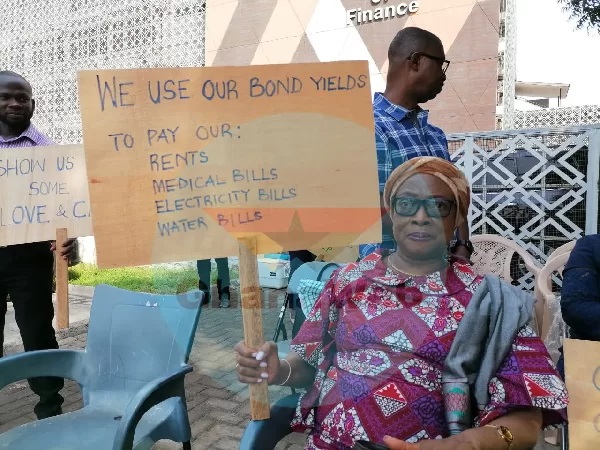 Finance
WE USE OUR BOND YIELDS
TO PAY OUR:
RENTS
MEDICAL BILLS
ELECTRICITY BILLS
WATER BILLS
SHOW US
SOME
LOVE & CA